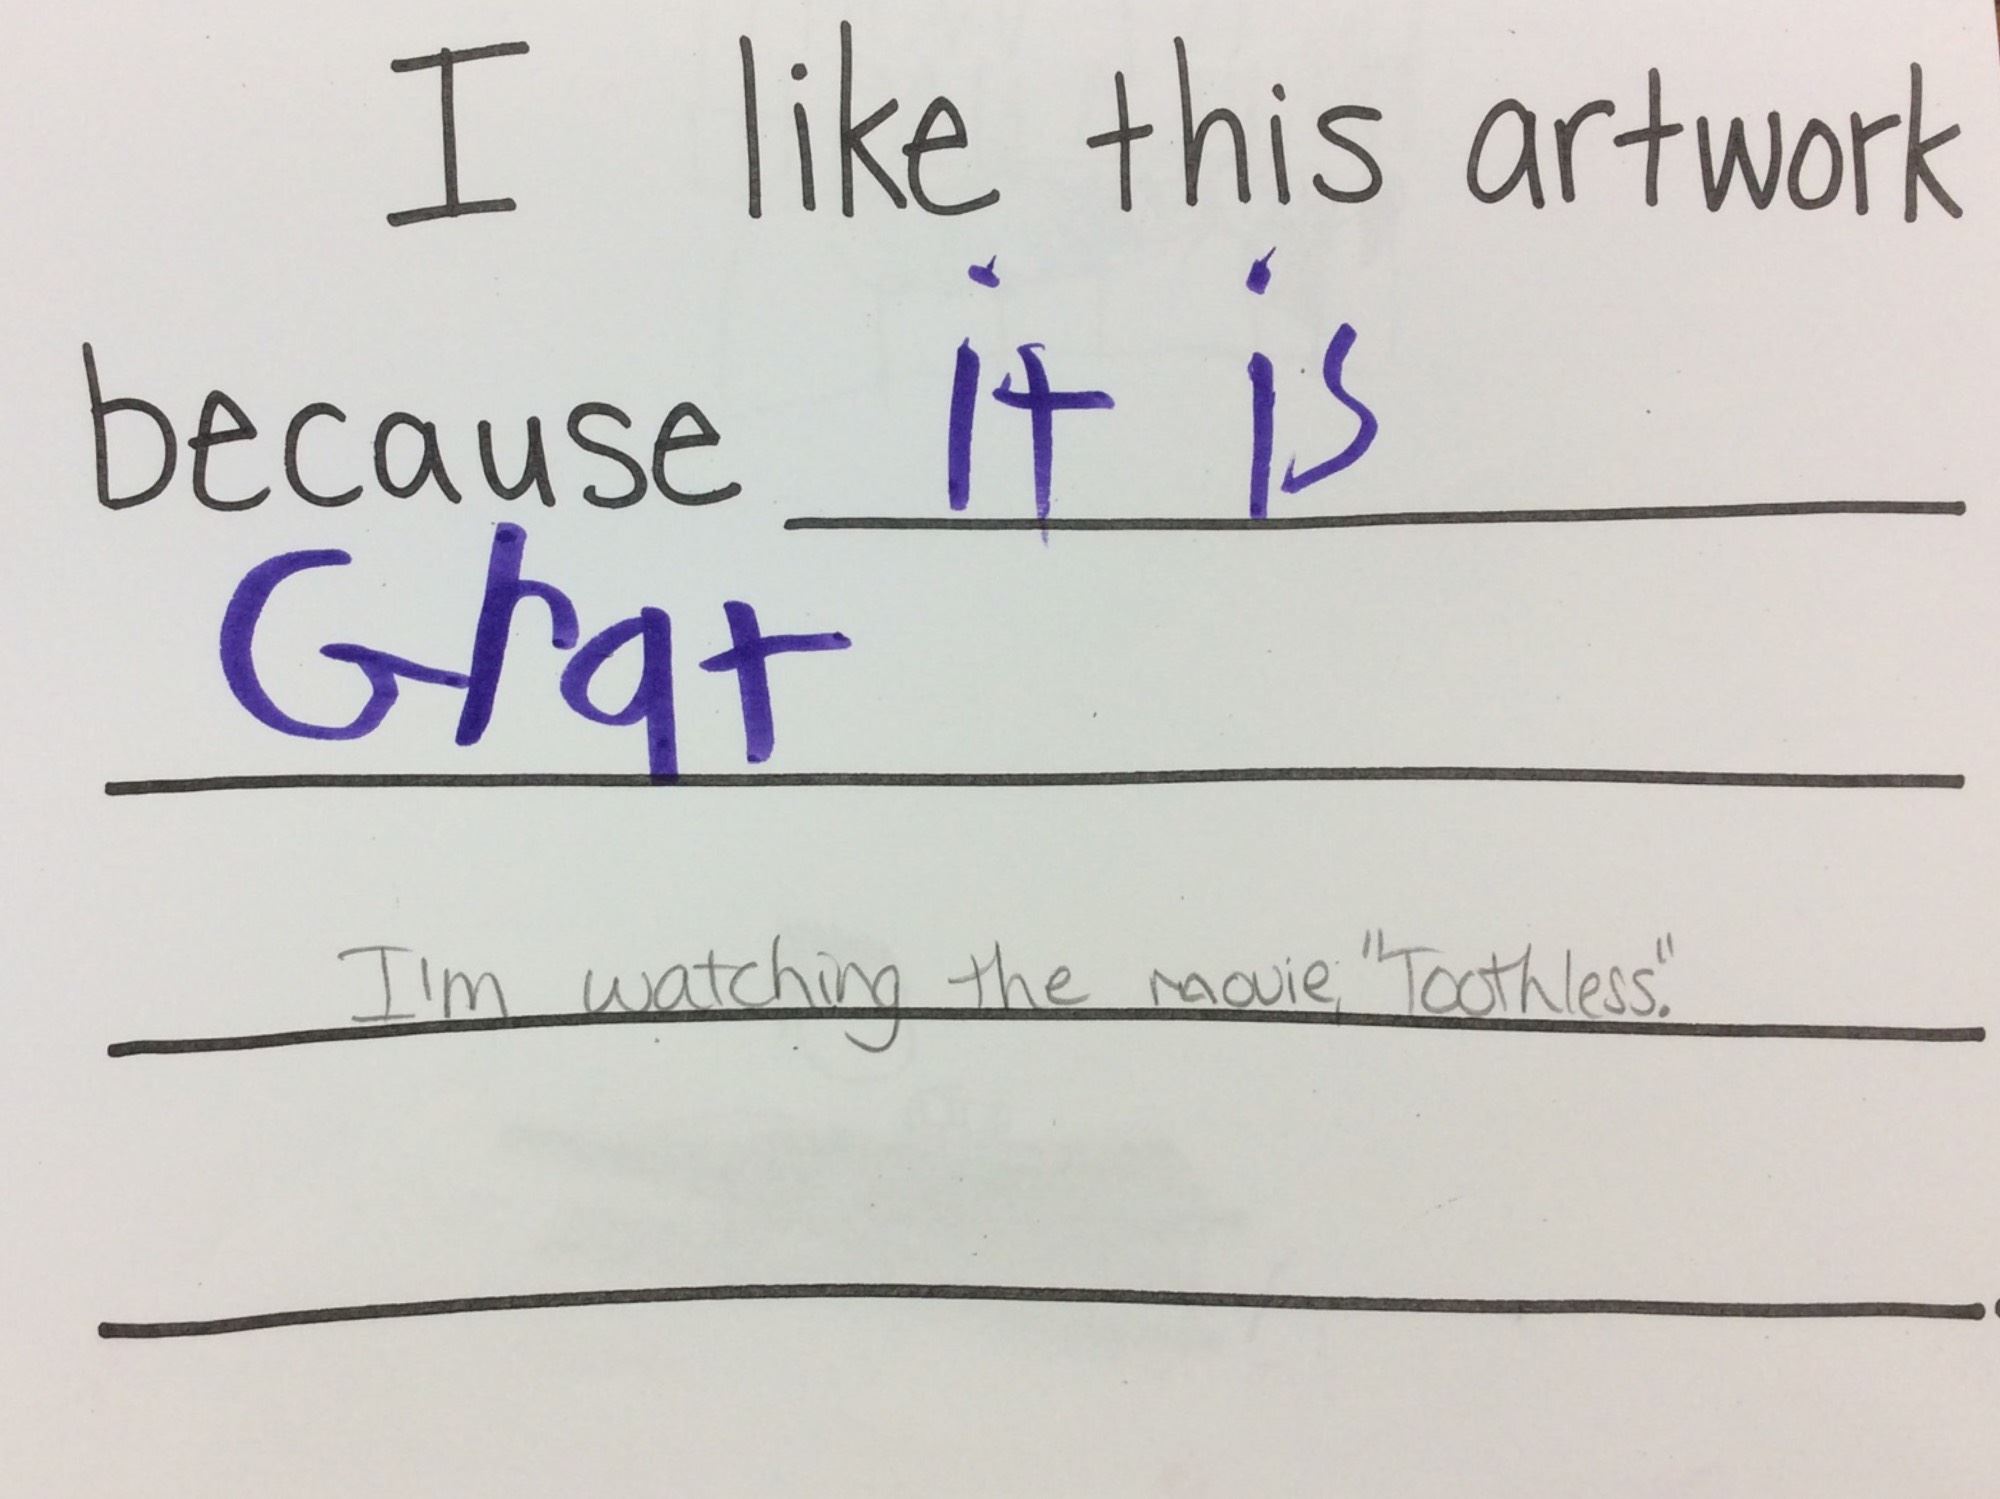 I like this artwork
because it is
Grat
I'm watching the movie, "Toothless."